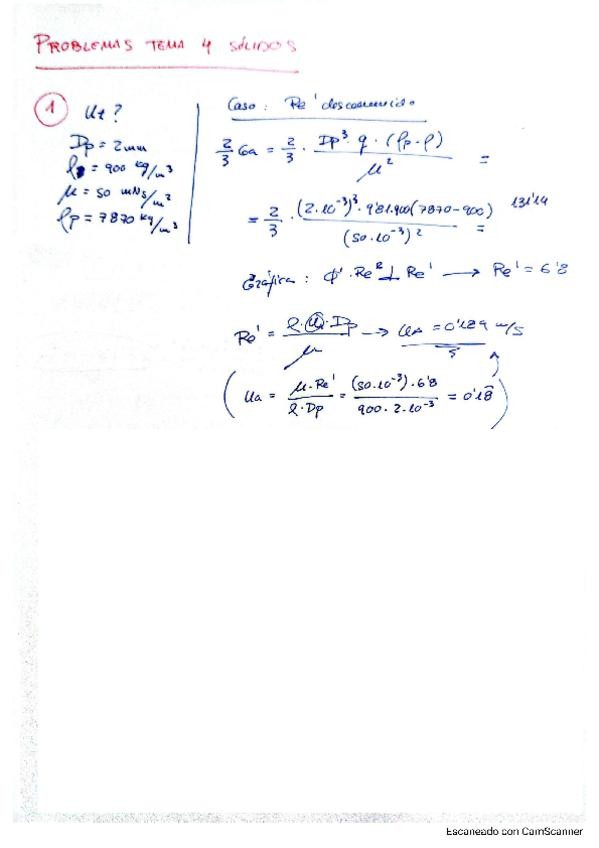 PROBLEMAS TEMA 4 SÓLIDOS
1 Ut?
Dp = 2mm
ρ = 900 kg/m³
μ = 50 mNs/m²
ρp = 7870 kg/m³
Caso: Re' desconocido
2/3 Ga = 2/3 · Dp³ · g · (ρp - ρ) / μ² =
= 2/3 · (2·10⁻³)³ · 9'81·900(7870-900) / (50·10⁻³)² = 131'14
Gráfica: φ'·Re² ⊥ Re' → Re' = 6'8
Re' = ρ·U·Dp / μ → Us = 0'189 m/s
(Ua = μ·Re' / ρ·Dp = (50·10⁻³)·6'8 / 900·2·10⁻³ = 0'18)
Escaneado con CamScanner